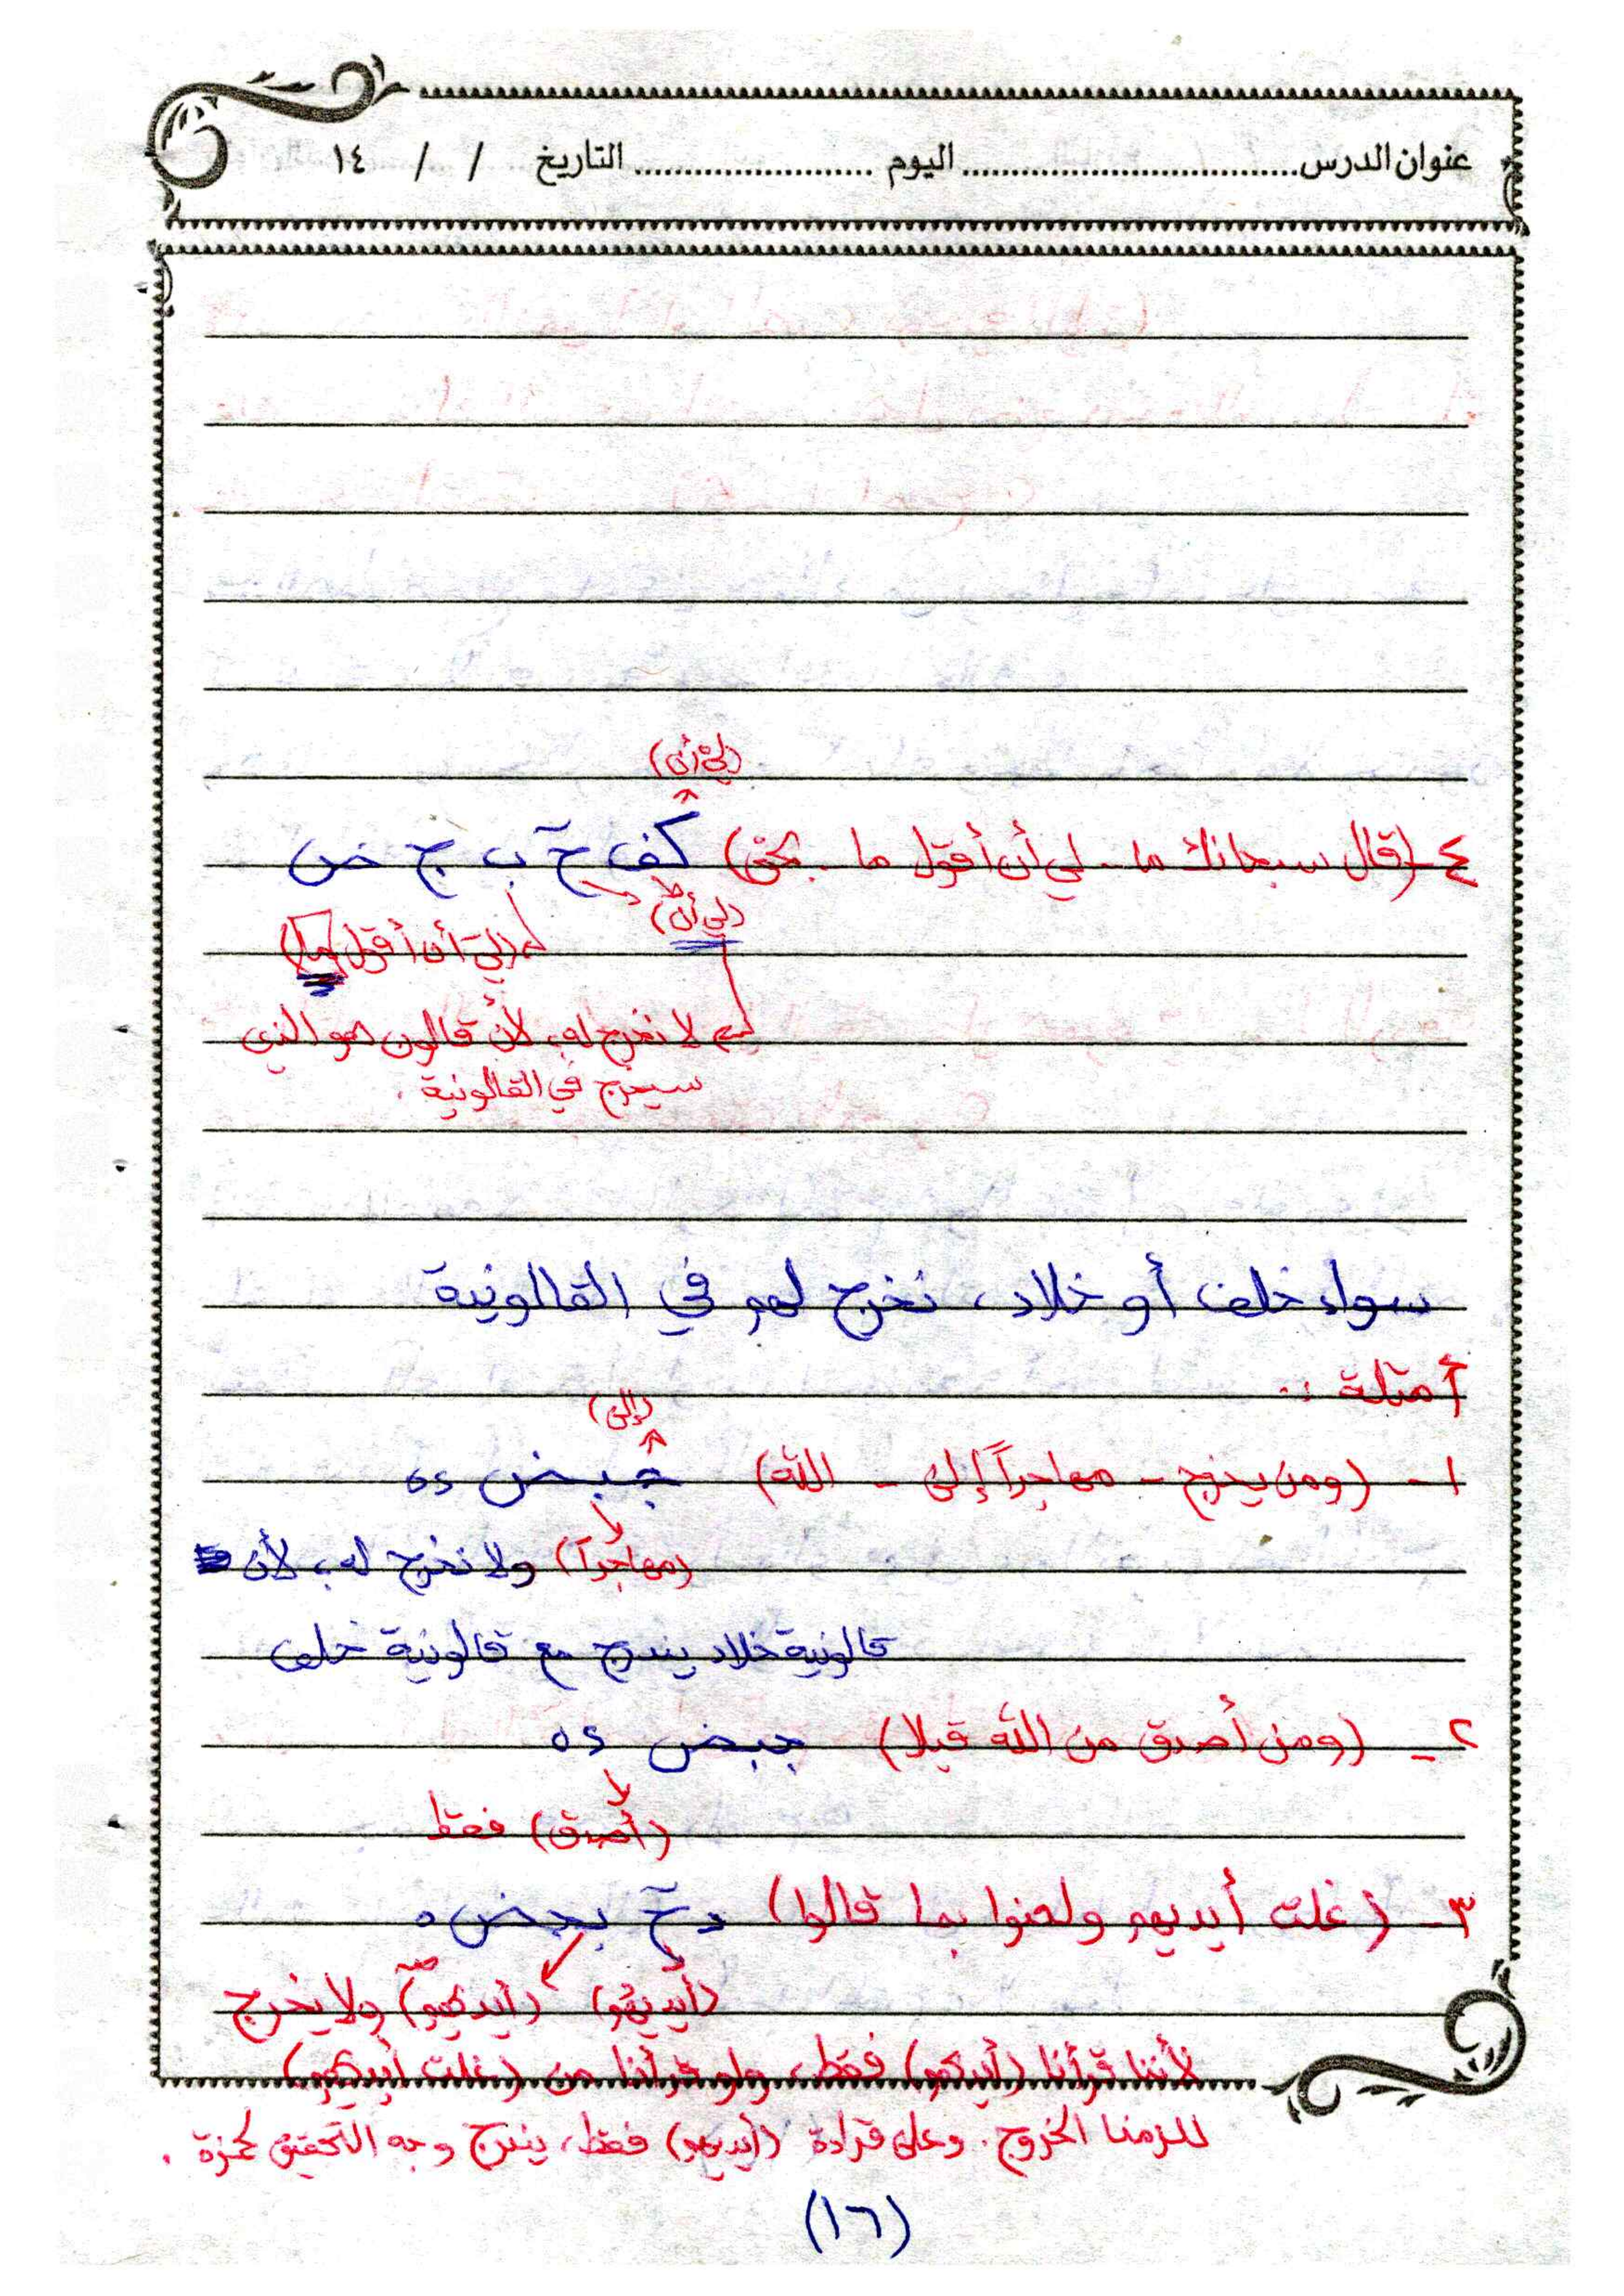 عنوان الدرس.................................. اليوم ........................ التاريخ / / ١٤
(لِيْ أن)
٤-(قال سبحانك ما - لي أن أقول ما - بحق) كف حٓ ب ج ض
(لي أن)
(لِيَ أن أقول ما)
لا نخرج له، لأن قالون هو الذي
سيخرج في القالونية .
سواء خلف أو خلاد ، نخرج لهم في القالونية
أمثلة :
(إلى)
١- (ومن يخرج - مهاجراً إلى - الله) جبض ٥٤
(مهاجراً) ولا نخرج له، لأن
قالونية خلاد يندرج مع قالونية خلف
٢- (ومن أصدق من الله قيلا) جبض ٥٤
(أصدق) فقط
٣- (غلت أيديهم ولعنوا بما قالوا) دحٓ ض ٥
(أيديهم) (أيديهم) ولا يخرج
لأننا قرأنا (أيديهم) فقط، ولو قرأنا من (غلت أيديهم)
للزمنا الخروج. وعلى قراءة (أيديهم) فقط، يندرج وجه التحقيق لحمزة .
(١٦)